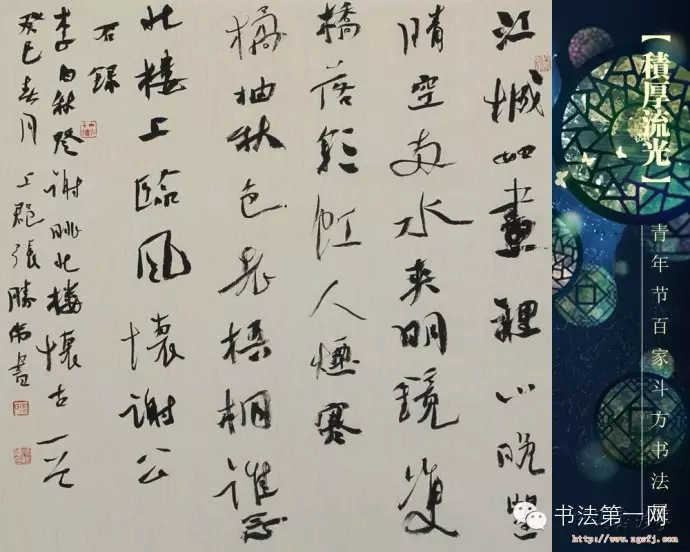 江城如畫裡山晚望
晴空兩水夾明鏡雙
橋落彩虹人煙寒
橘柚秋色老梧桐誰念
北樓上臨風懷謝公
右錄
李白秋登謝朓北樓懷古一首
癸巳春月 上郡張勝偉書
【積厚流光】
青年节百家斗方书法
书法第一网
http://www.zgsfj.com